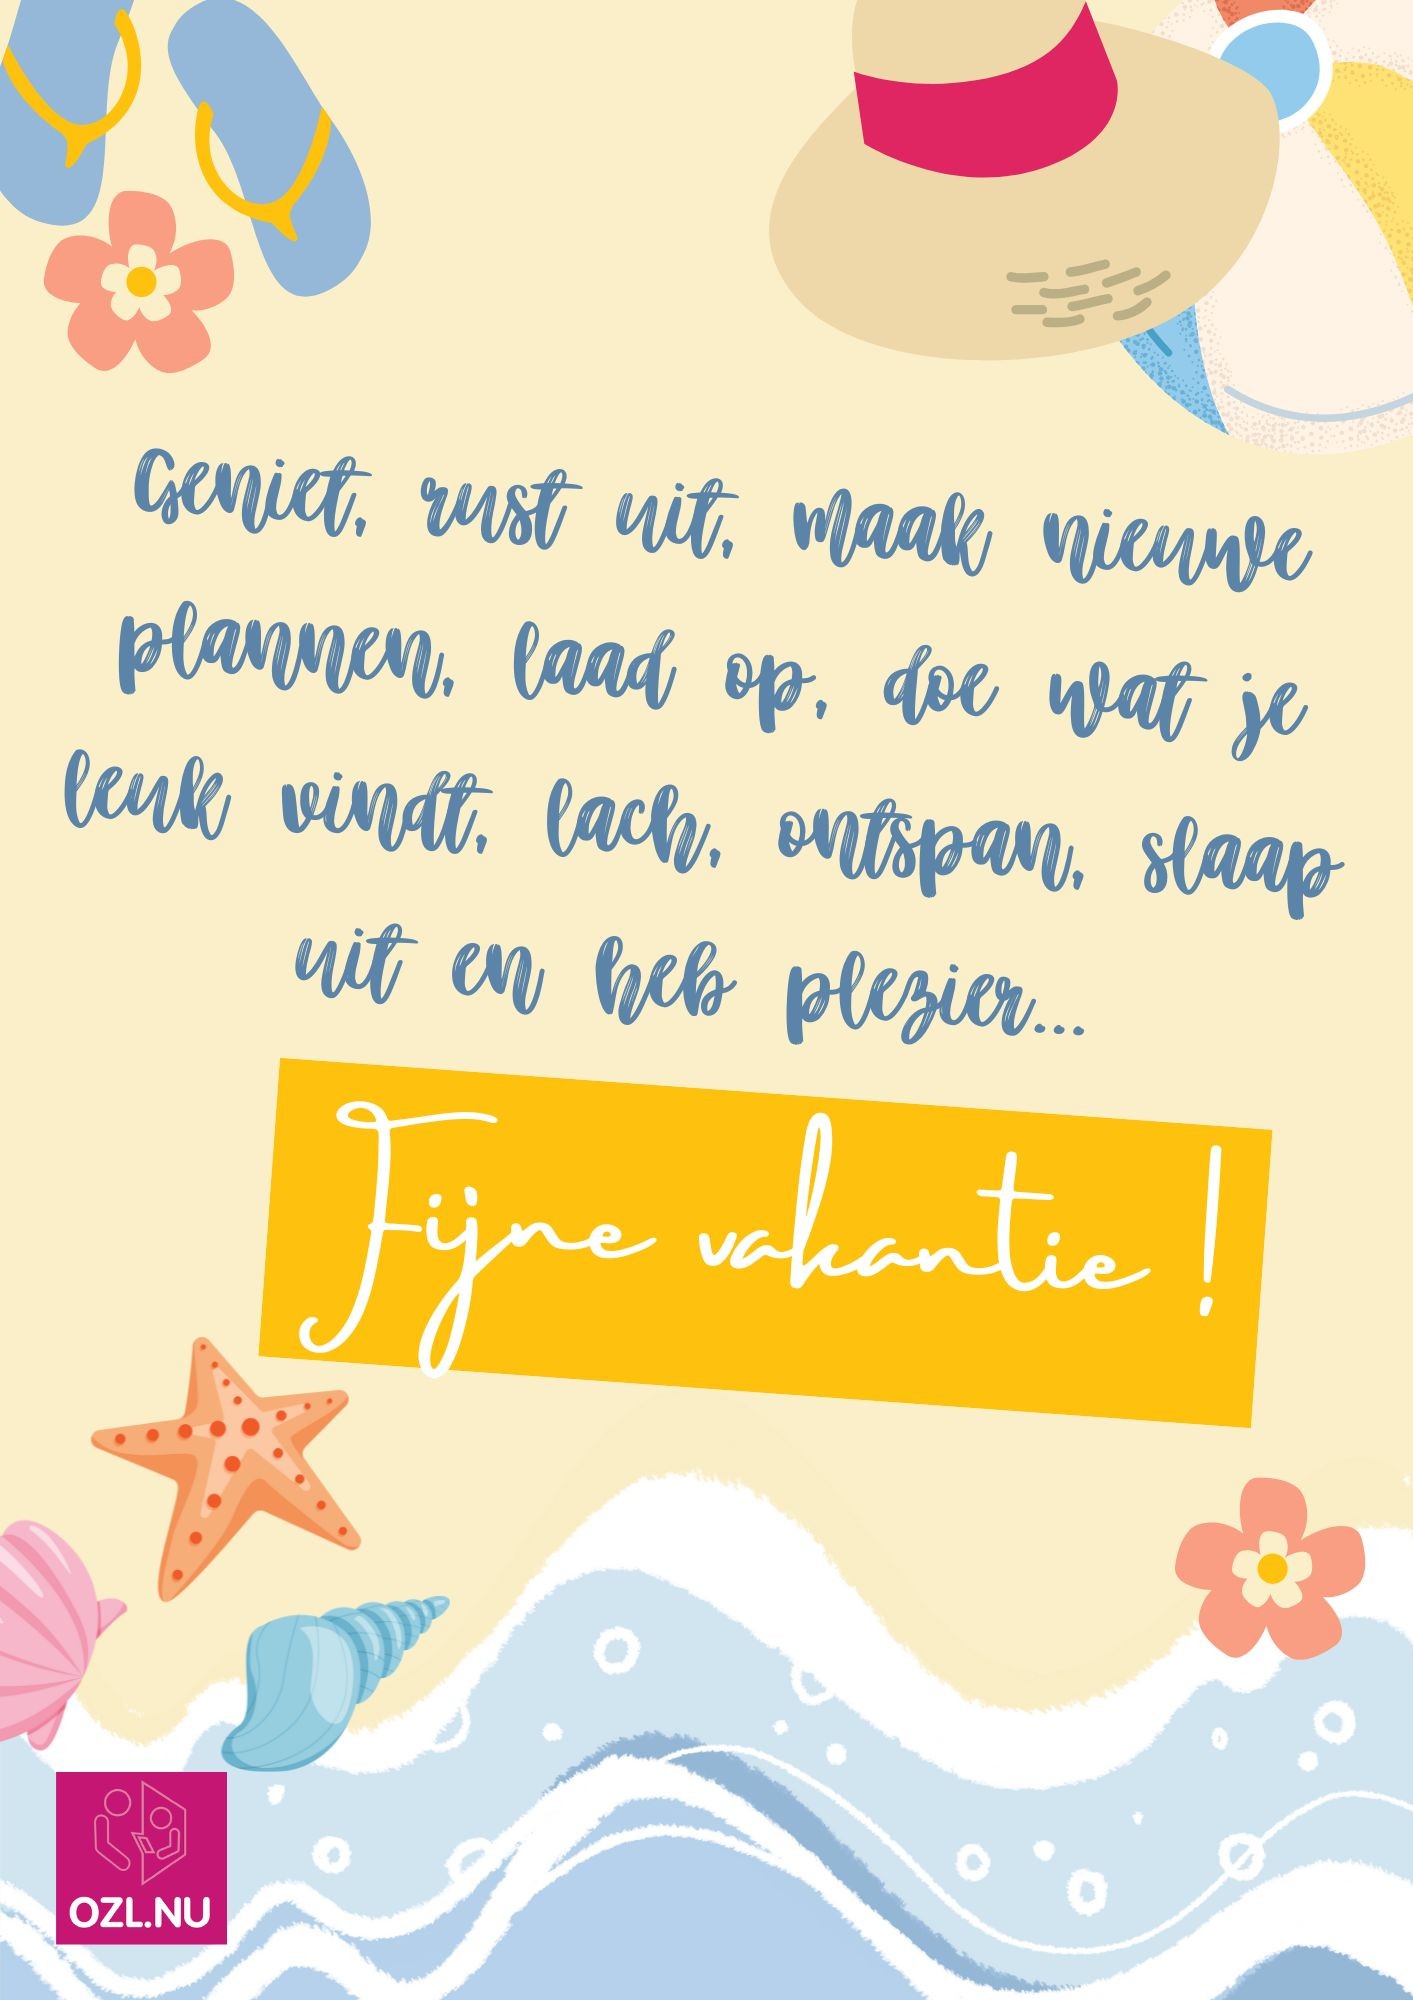 Geniet, rust uit, maak nieuwe
plannen, laad op, doe wat je
leuk vindt, lach, ontspan, slaap
uit en heb plezier...
Fijne vakantie !
OZL.NU